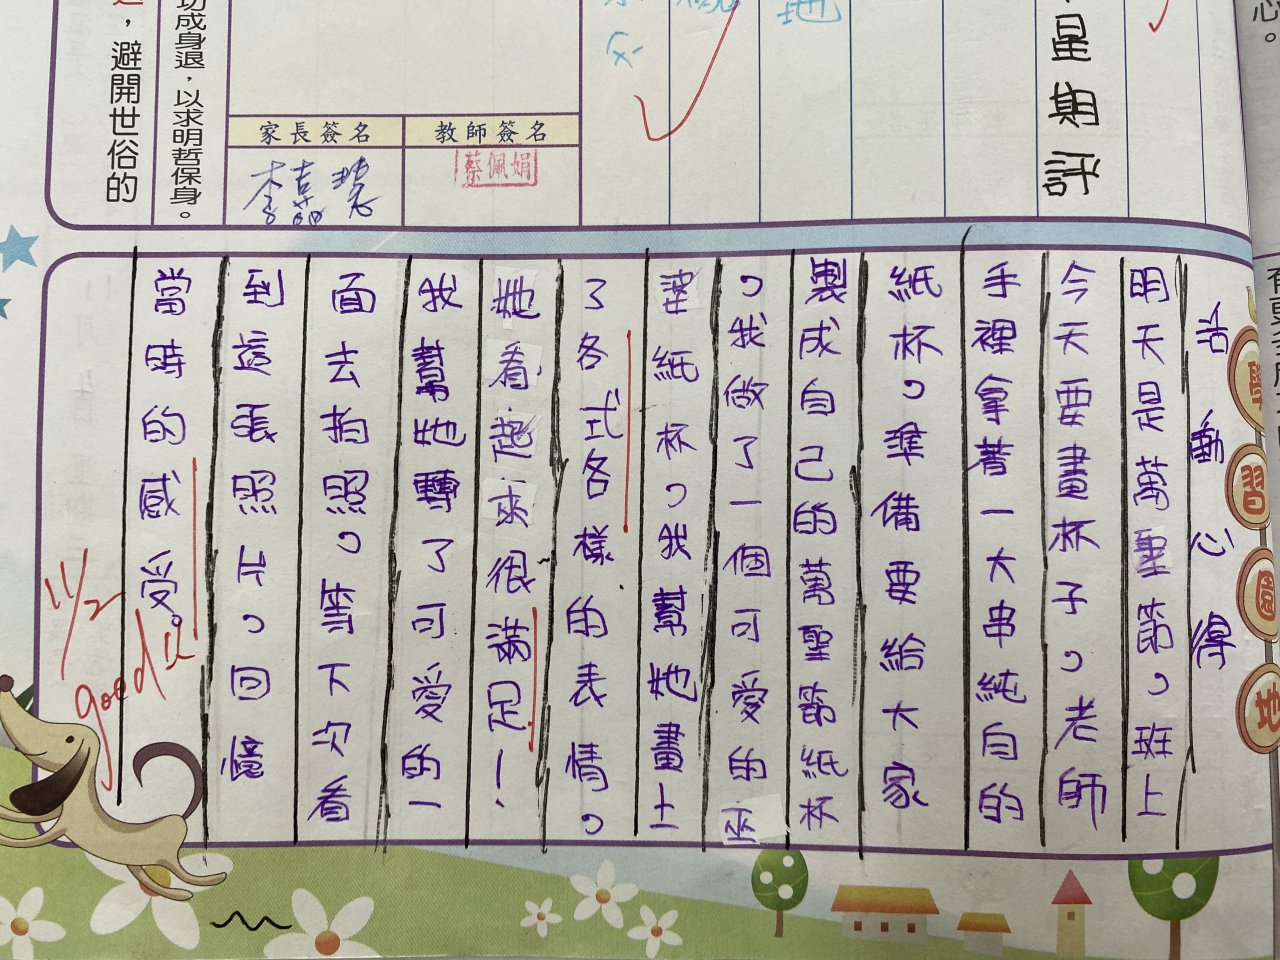 星期評
活動心得
明天是萬聖節，班上
今天要畫杯子，老師
手裡拿著一大串純白的
紙杯，準備要給大家
製成自己的萬聖節紙杯
，我做了一個可愛的巫
婆紙杯，我幫她畫上
了各式各樣的表情，
她看起來很滿足！
我幫她轉了可愛的一
面去拍照，等下次看
到這張照片，回憶
當時的感受。
11/2
good
家長簽名
教師簽名
蔡佩娟
功成身退，以求明哲保身。
，避開世俗的
學習園地
地
心。